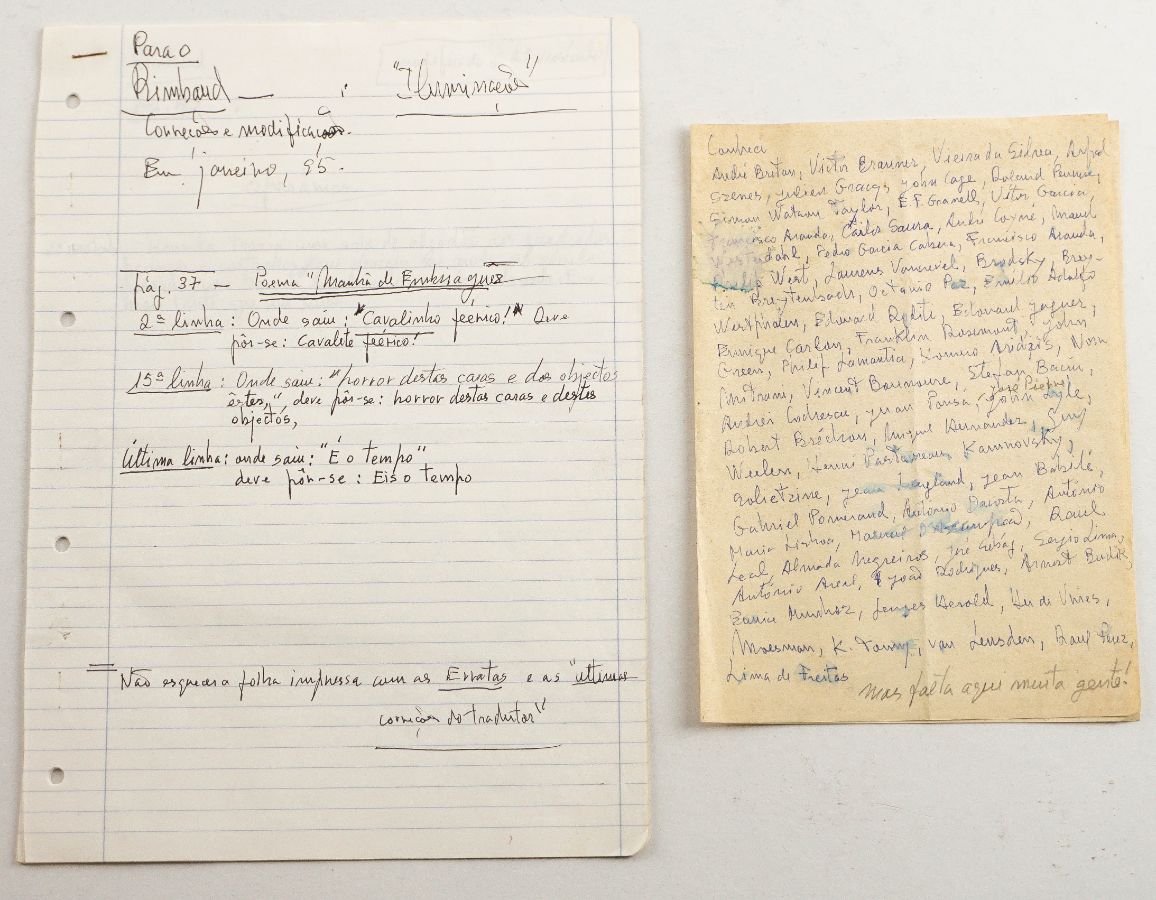 Para o
Rimbaud — : "Iluminações"
Correcções e modificações.
Em janeiro, 95.
pág. 37 — Poema "Manhã de Embriaguez"
2ª linha: Onde saiu: "Cavalinho feérico!" Deve
pôr-se: Cavalete feérico!
15ª linha: Onde saiu: "horror destas caras e dos objectos
êstes," deve pôr-se: horror destas caras e destes
objectos,
Última linha: onde saiu: "É o tempo"
deve pôr-se: Eis o tempo
Não esquecer a folha impressa com as Erratas e as "últimas
correcções do tradutor"
André Breton, Victor Brauner, Vieira da Silva, Arpad
Szenes, Julien Gracq, John Cage, Roland Penrose,
Simon Watson Taylor, E.F. Granell, Vítor Garcia,
Francisco Aranda, Carlos Saura, André Corne, Maud
Westerdahl, Pedro Garcia Cabrera, Francisco Aranda,
West, Laurens Vancrevel, Brodsky, Brey-
ten Breytenbach, Octavio Paz, Emilio Adolfo
Westphalen, Edouard Roditi, Edouard Jaguer,
Eurrique Carlon, Franklin Rosemont, John
Green, Philip Lamantia, Nora
Mitrani, Vincent Bounoure, Stefan Baciu,
Andrei Codrescu, Juan José Pierre, John Lyle,
Robert Bréchon, Miguel Hernandez,
Henri Pastoureau, Kaminovsky,
Golietzine, Jean Layland, Jean Babilé,
Gabriel Pomerand, António Dacosta, António
Maria Lisboa, Raul
Leal, Almada Negreiros, José Sebag, Sergio Lima,
António Areal, João Rodrigues, Arnost Budik,
Eunice Muñhoz, Jacques Herold, Her de Vries,
Moesman, K. van Leusden, Raul Perez,
Lima de Freitas
mas falta aqui muita gente!